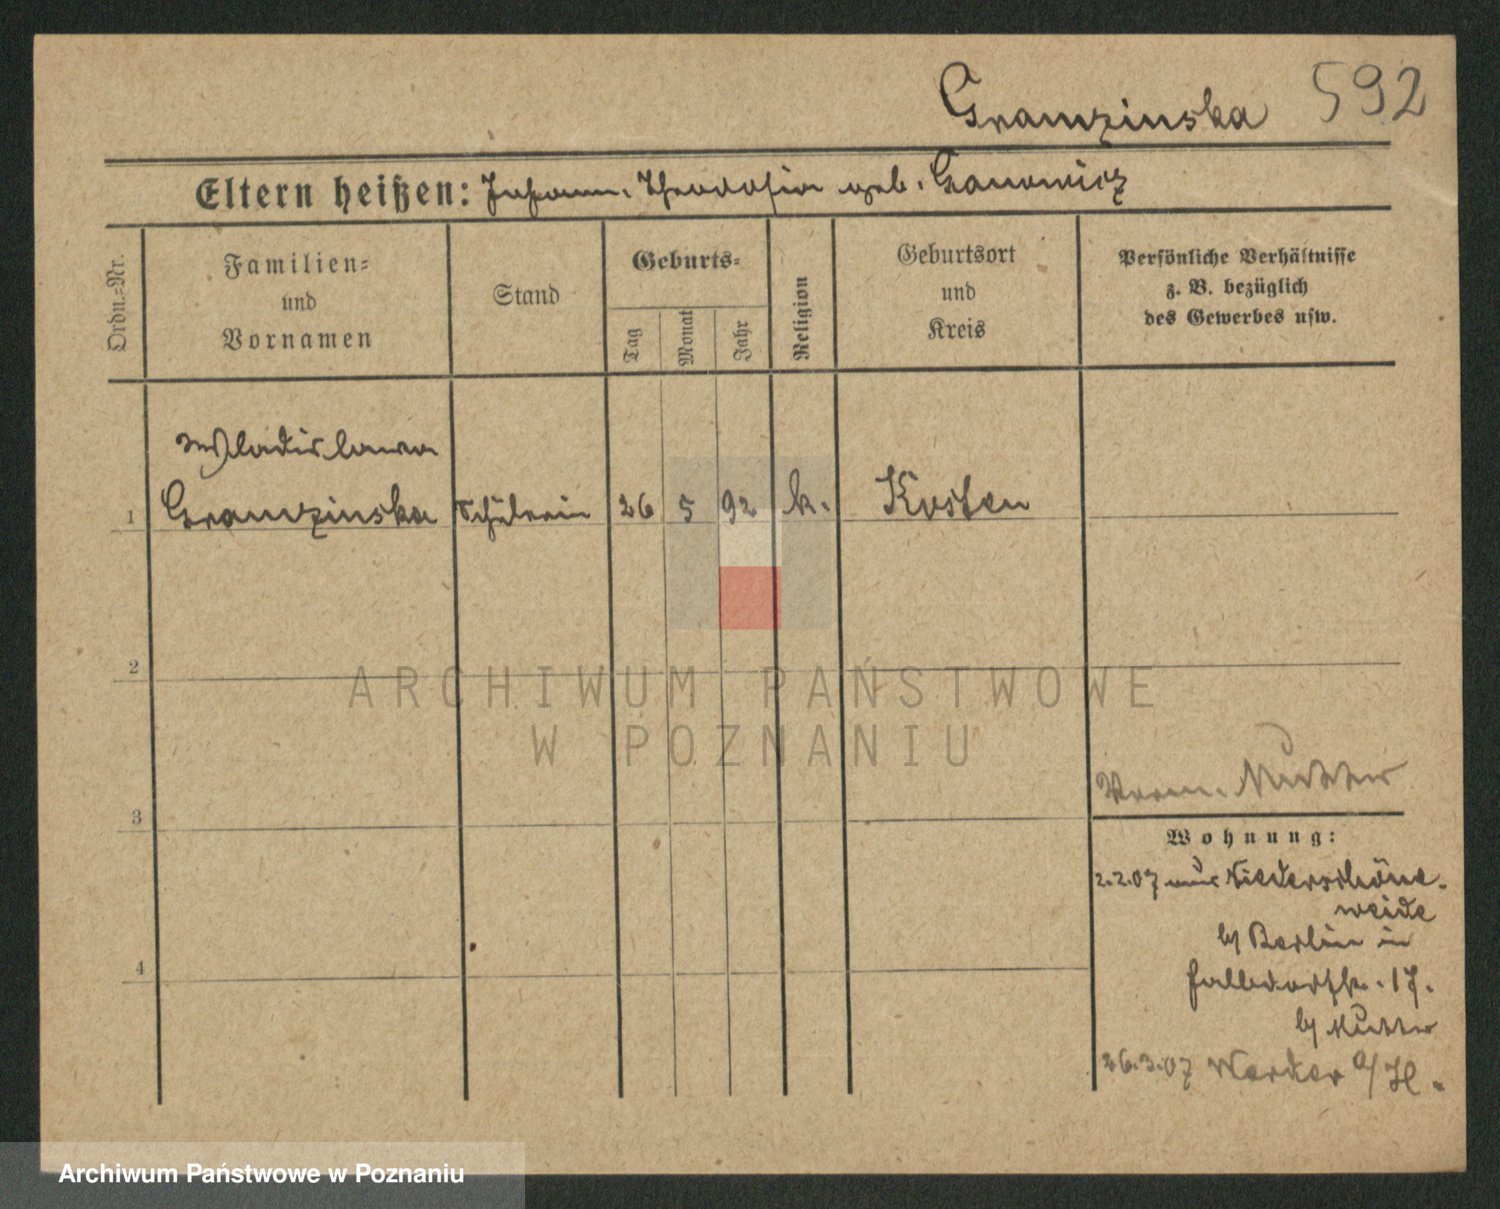 Gramzinska 592
Eltern heißen: Johann, Theodosia geb. Ganowicz
Ordn.=Nr.
Familien=
und
Vornamen
Stand
Geburts=
Tag
Monat
Jahr
Religion
Geburtsort
und
Kreis
Persönliche Verhältnisse
z. B. bezüglich
des Gewerbes usw.
Wladislawa
1 Gramzinska Schülerin 26 5 92 k. Kosten
2
3
4
Verm. Mutter
Wohnung:
2.2.07 aus Niederschöne-
weide
b/ Berlin in
17.
b/ Mutter
26.3.07 Werder a/H.
ARCHIWUM PAŃSTWOWE
W POZNANIU
Archiwum Państwowe w Poznaniu